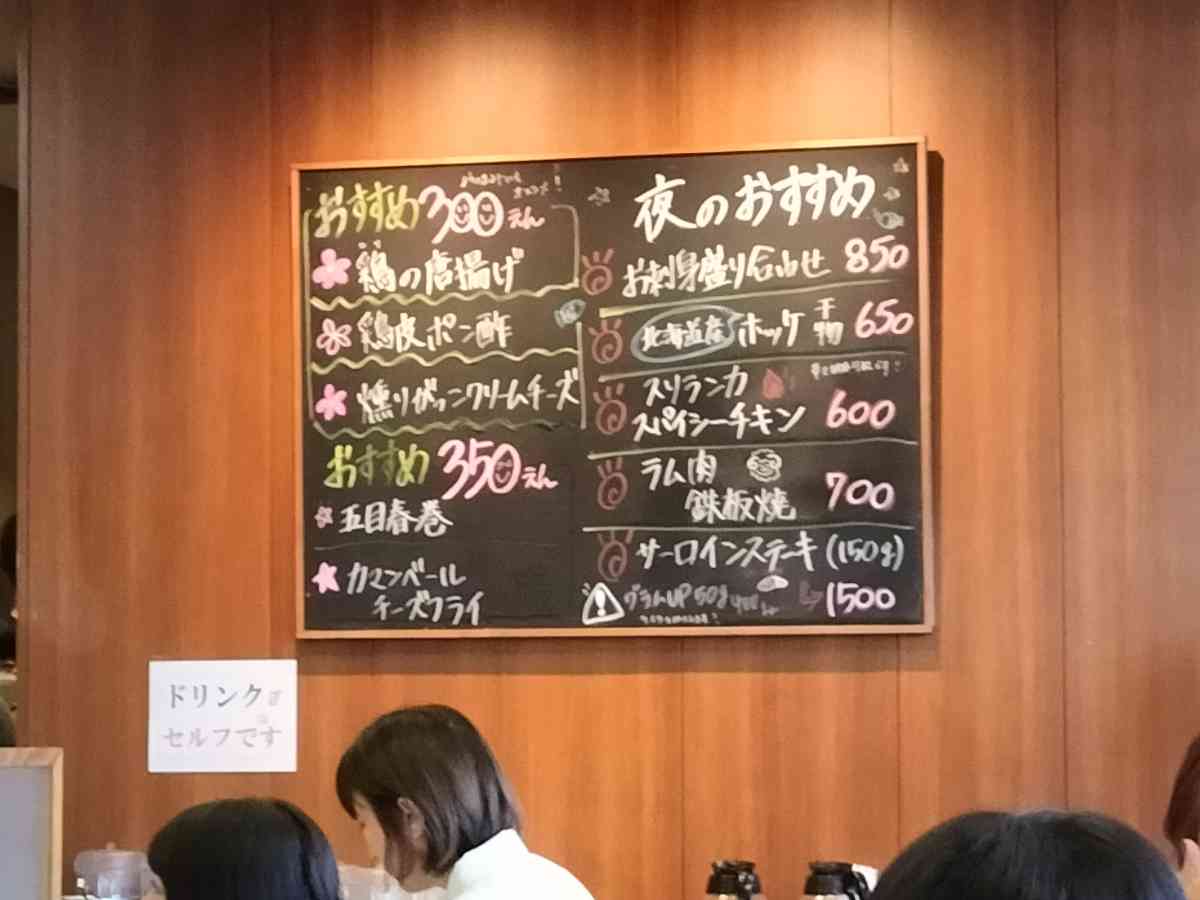 おすすめ300えん
鶏の唐揚げ
鶏皮ポン酢
燻りがっこクリームチーズ
おすすめ350えん
五目春巻
カマンベール
チーズフライ
夜のおすすめ
お刺身盛り合わせ 850
北海道産 ホッケ 干物 650
スリランカ
スパイシーチキン 600
ラム肉
鉄板焼 700
サーロインステーキ (150g)
グラムUP 50g
1500
ドリンクは
セルフです